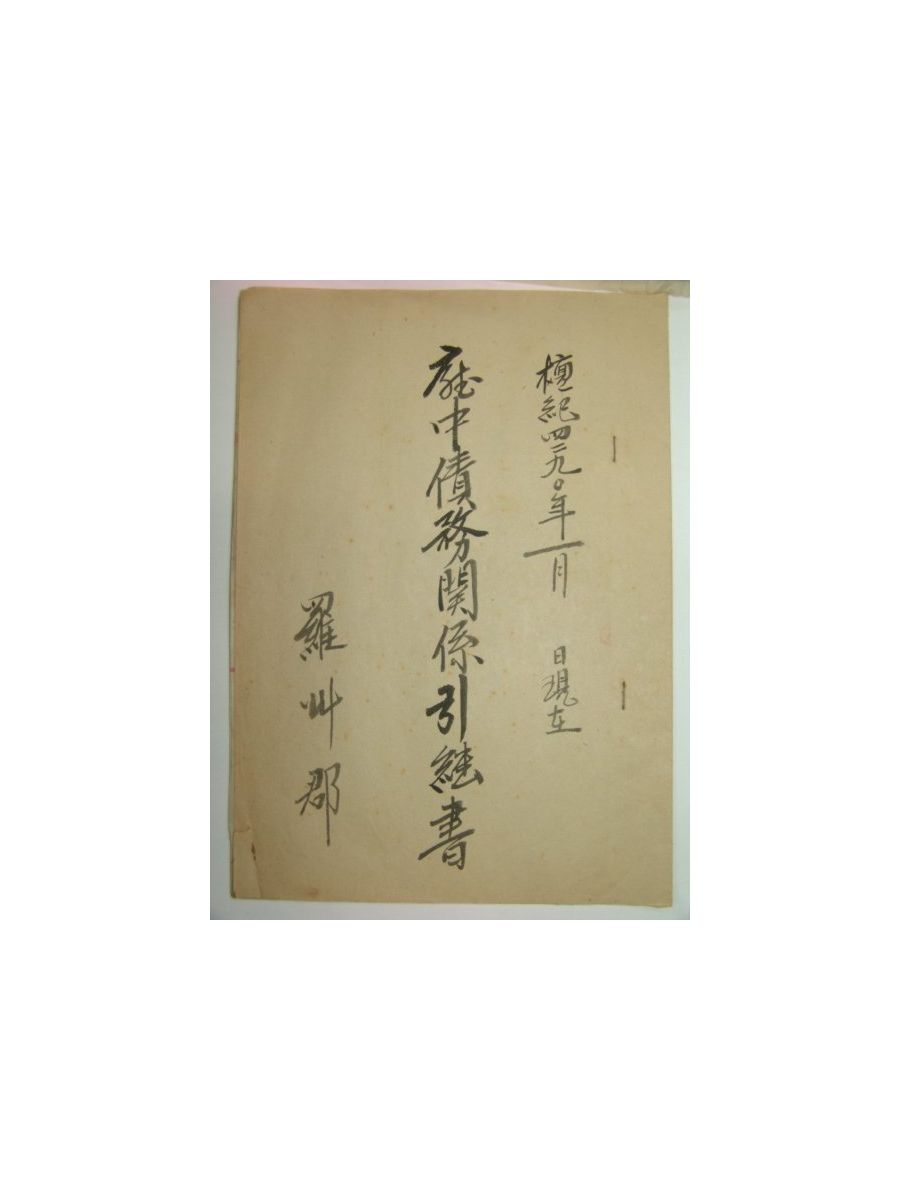 檀紀四二九〇年一月 日現在
廳中債務関係引継書
羅州郡